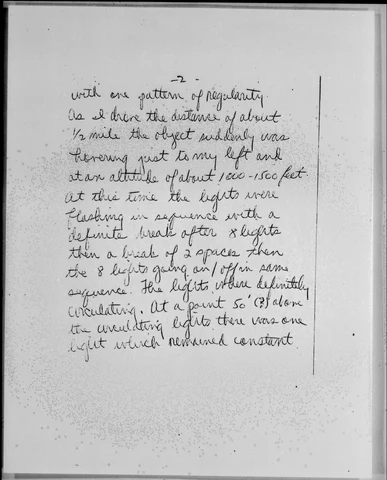 - 2 -
with one pattern of regularity
As I drove the distance of about
1/2 mile the object suddenly was
hovering just to my left and
at an altitude of about 1000-1500 feet.
At this time the lights were
flashing in sequence with a
definite break after 8 lights
then a break of 2 spaces then
the 8 lights going on/off in same
sequence. The lights where definitely
circulating. At a point 50' (?) above
the circulating lights there was one
light which remained constant